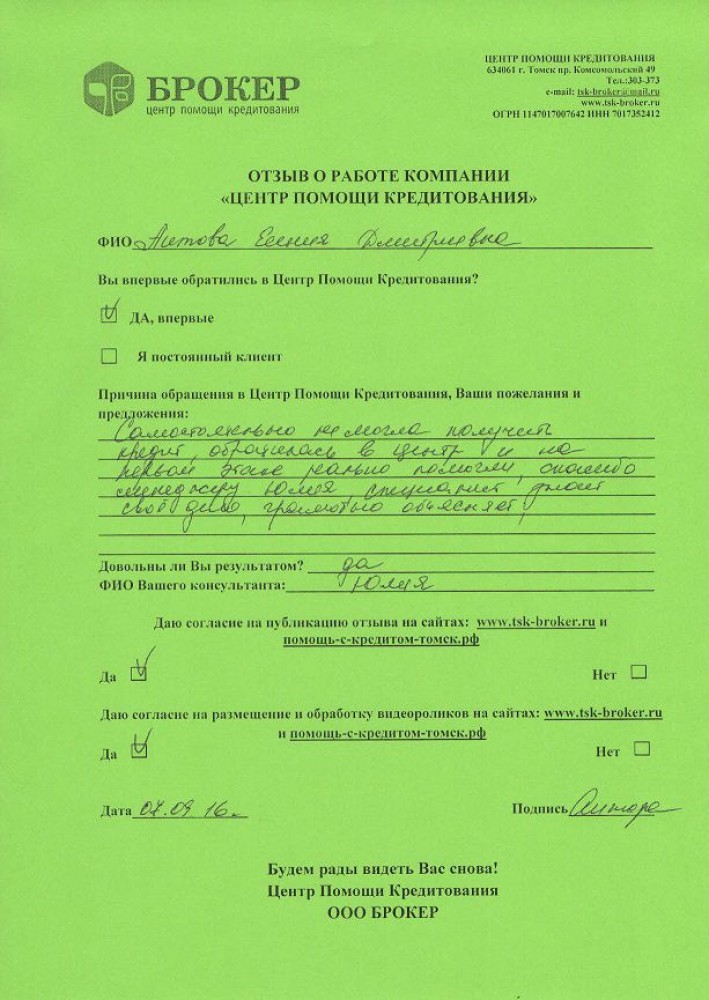 БРОКЕР
центр помощи кредитования
ЦЕНТР ПОМОЩИ КРЕДИТОВАНИЯ
634061 г. Томск пр. Комсомольский 49
Тел.:303-373
e-mail: tsk-broker@mail.ru
www.tsk-broker.ru
ОГРН 1147017007642 ИНН 7017352412
ОТЗЫВ О РАБОТЕ КОМПАНИИ
«ЦЕНТР ПОМОЩИ КРЕДИТОВАНИЯ»
ФИО Дмитриевна
Вы впервые обратились в Центр Помощи Кредитования?
ДА, впервые
Я постоянный клиент
Причина обращения в Центр Помощи Кредитования, Ваши пожелания и
предложения:
Самостоятельно не могла получить
кредит, обратилась в центр и на
первом этапе реально помогли, спасибо
менеджеру Юлия, специалист, знает
своё дело, грамотно объясняет,
Довольны ли Вы результатом? да
ФИО Вашего консультанта: Юлия
Даю согласие на публикацию отзыва на сайтах: www.tsk-broker.ru и
помощь-с-кредитом-томск.рф
Да Нет
Даю согласие на размещение и обработку видеороликов на сайтах: www.tsk-broker.ru
и помощь-с-кредитом-томск.рф
Да Нет
Дата 07.09 16г. Подпись
Будем рады видеть Вас снова!
Центр Помощи Кредитования
ООО БРОКЕР